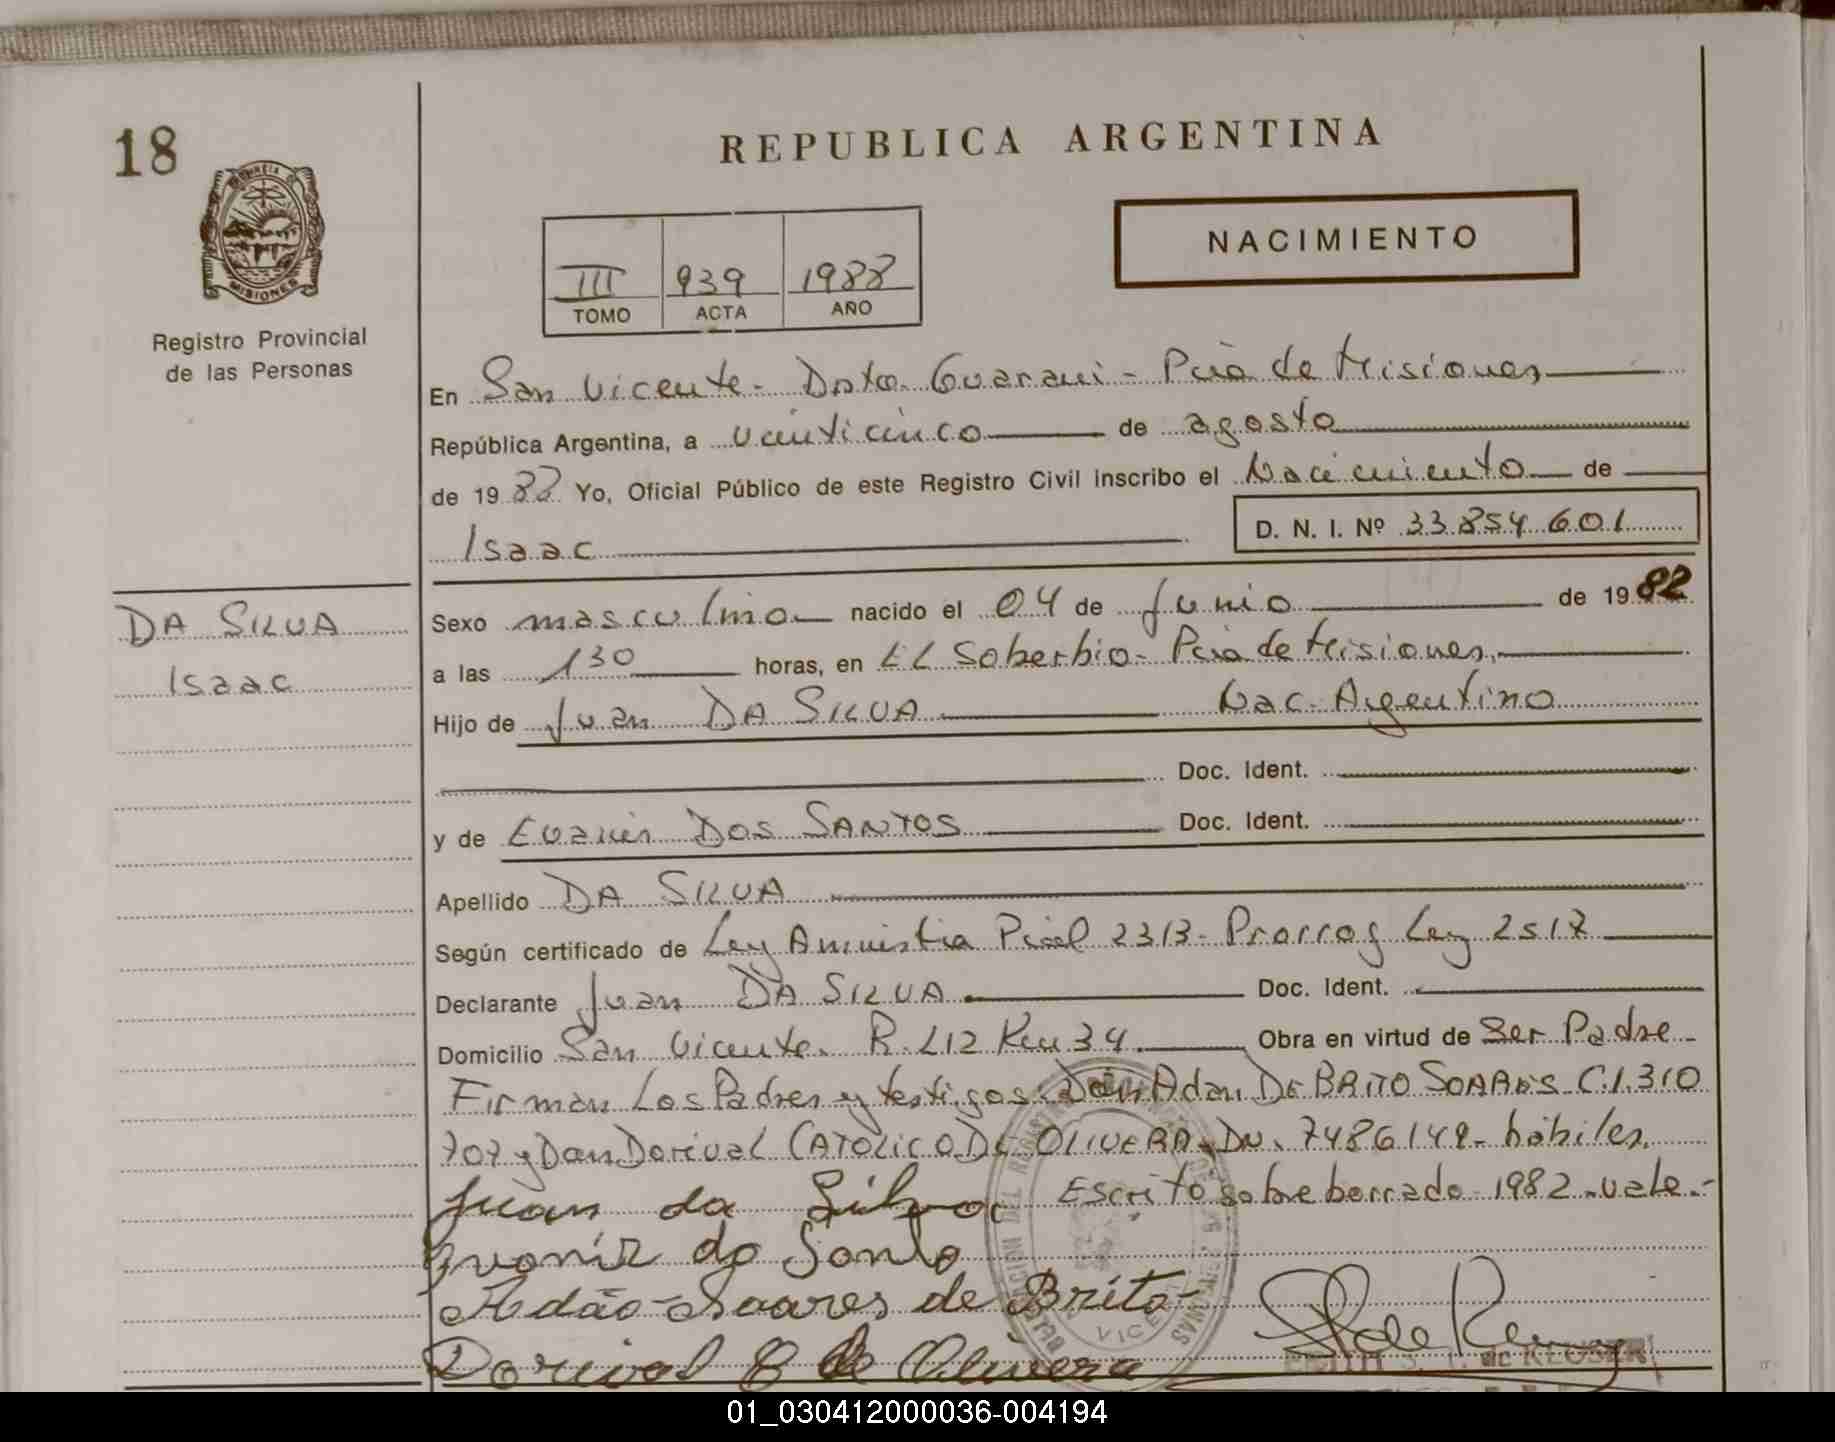 18
REPUBLICA ARGENTINA
PROVINCIA DE
MISIONES
NACIMIENTO
III 939 1988
TOMO ACTA AÑO
Registro Provincial
de las Personas
En San Vicente - Dpto. Guarani - Pcia de Misiones
República Argentina, a veinticinco de agosto
de 19 88 Yo, Oficial Público de este Registro Civil inscribo el Nacimiento de
Isaac D. N. I. Nº 33.854.601
DA SILVA
Isaac
Sexo masculino nacido el 04 de Junio de 19 82
a las 130 horas, en EL Soberbio - Pcia de Misiones.
Hijo de Juan DA SILVA Nac. Argentino
Doc. Ident.
y de DOS SANTOS Doc. Ident.
Apellido DA SILVA
Según certificado de Ley Amnistia Pcial 2313 - Prorrog Ley 2517
Declarante Juan DA SILVA Doc. Ident.
Domicilio San Vicente. R. L12 Km 34 Obra en virtud de Ser Padre -
Firman Los Padres y testigos Don Adan DE BRITO SOARES C.I. 310
707 y Don Dorival CATOLICO DE OLIVERA DN. 7486149 - hábiles.
Escrito sobre borrado 1982 - vale. -
Juan da Silva
do Santo
Adão Soares de Brito
Dorival C de Olivera
de KEUSER
01_030412000036-004194